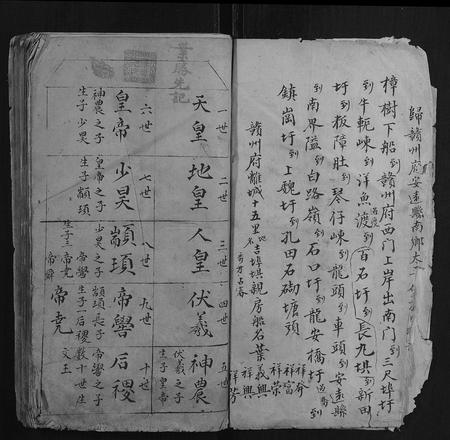 歸贛州府安遠縣南鄉太
樟樹下船到贛州府西門上岸出南門到三尺埠圩
到牛軛崠到洋魚渡到百石圩到長九埧到新田
圩到板障肚到琴仔崠到龍頭到車頭到安遠縣
到南界隘到白路嶺到石口圩到龍安橋圩
鎮崗圩到上魏圩到孔田石砌塘頭
贛州府離城十五里地名吉埠埧親房船石葉
祥裔
祥富
祥榮
義興
祥興
祥芳
葉勝先記
一世 天皇
二世 地皇
三世 人皇
四世 伏羲
五世 神農 伏羲之子 生子皇帝
六世 皇帝 神農之子 生子少昊
七世 少昊 皇帝之子 生子顓頊
八世 顓頊 少昊之子
九世 帝嚳 顓頊長子 生子一后稷
帝堯
十世 后稷 帝嚳之子 數十世生文王